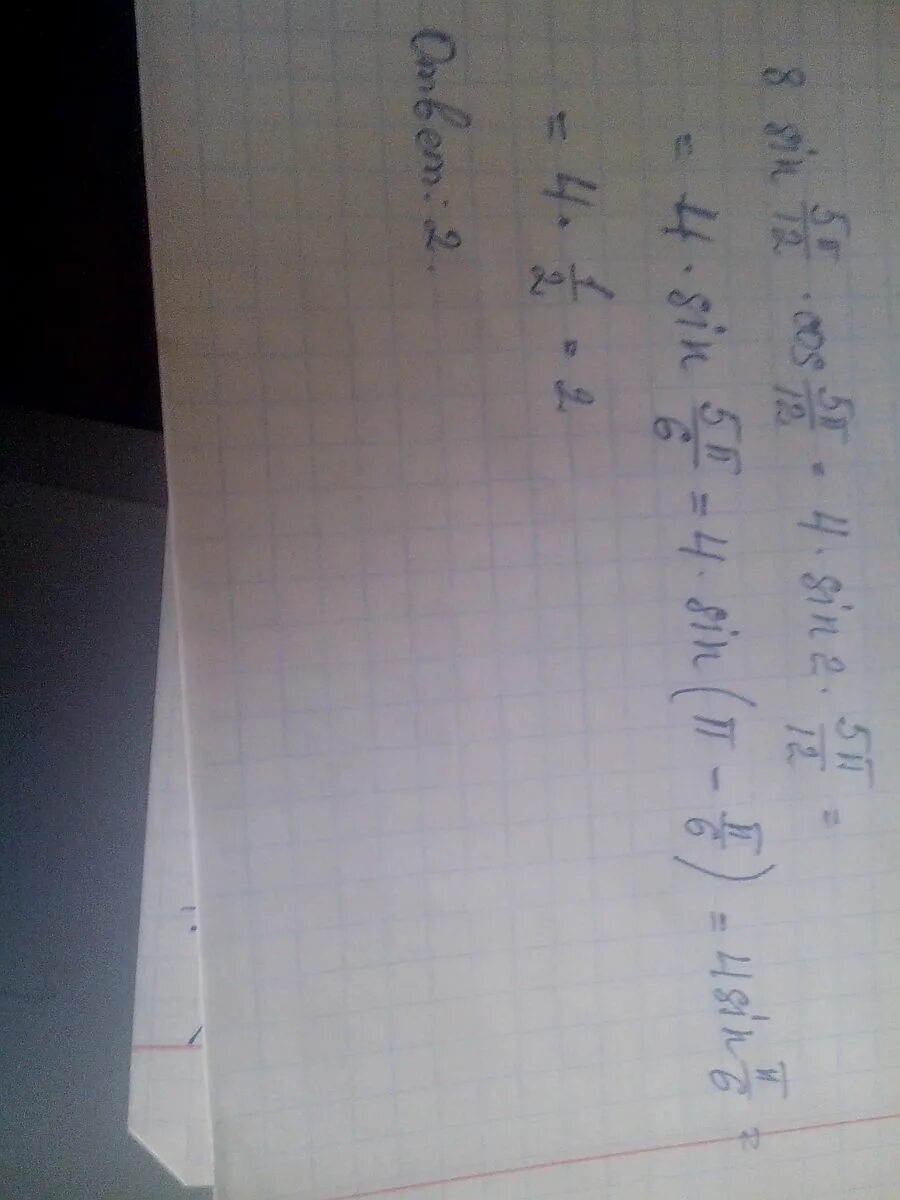 8 sin 5π/12 · cos 5π/12 = 4 · sin 2 · 5π/12 =
= 4 · sin 5π/6 = 4 · sin (π − π/6) = 4 sin π/6 =
= 4 · 1/2 = 2
Ответ: 2.